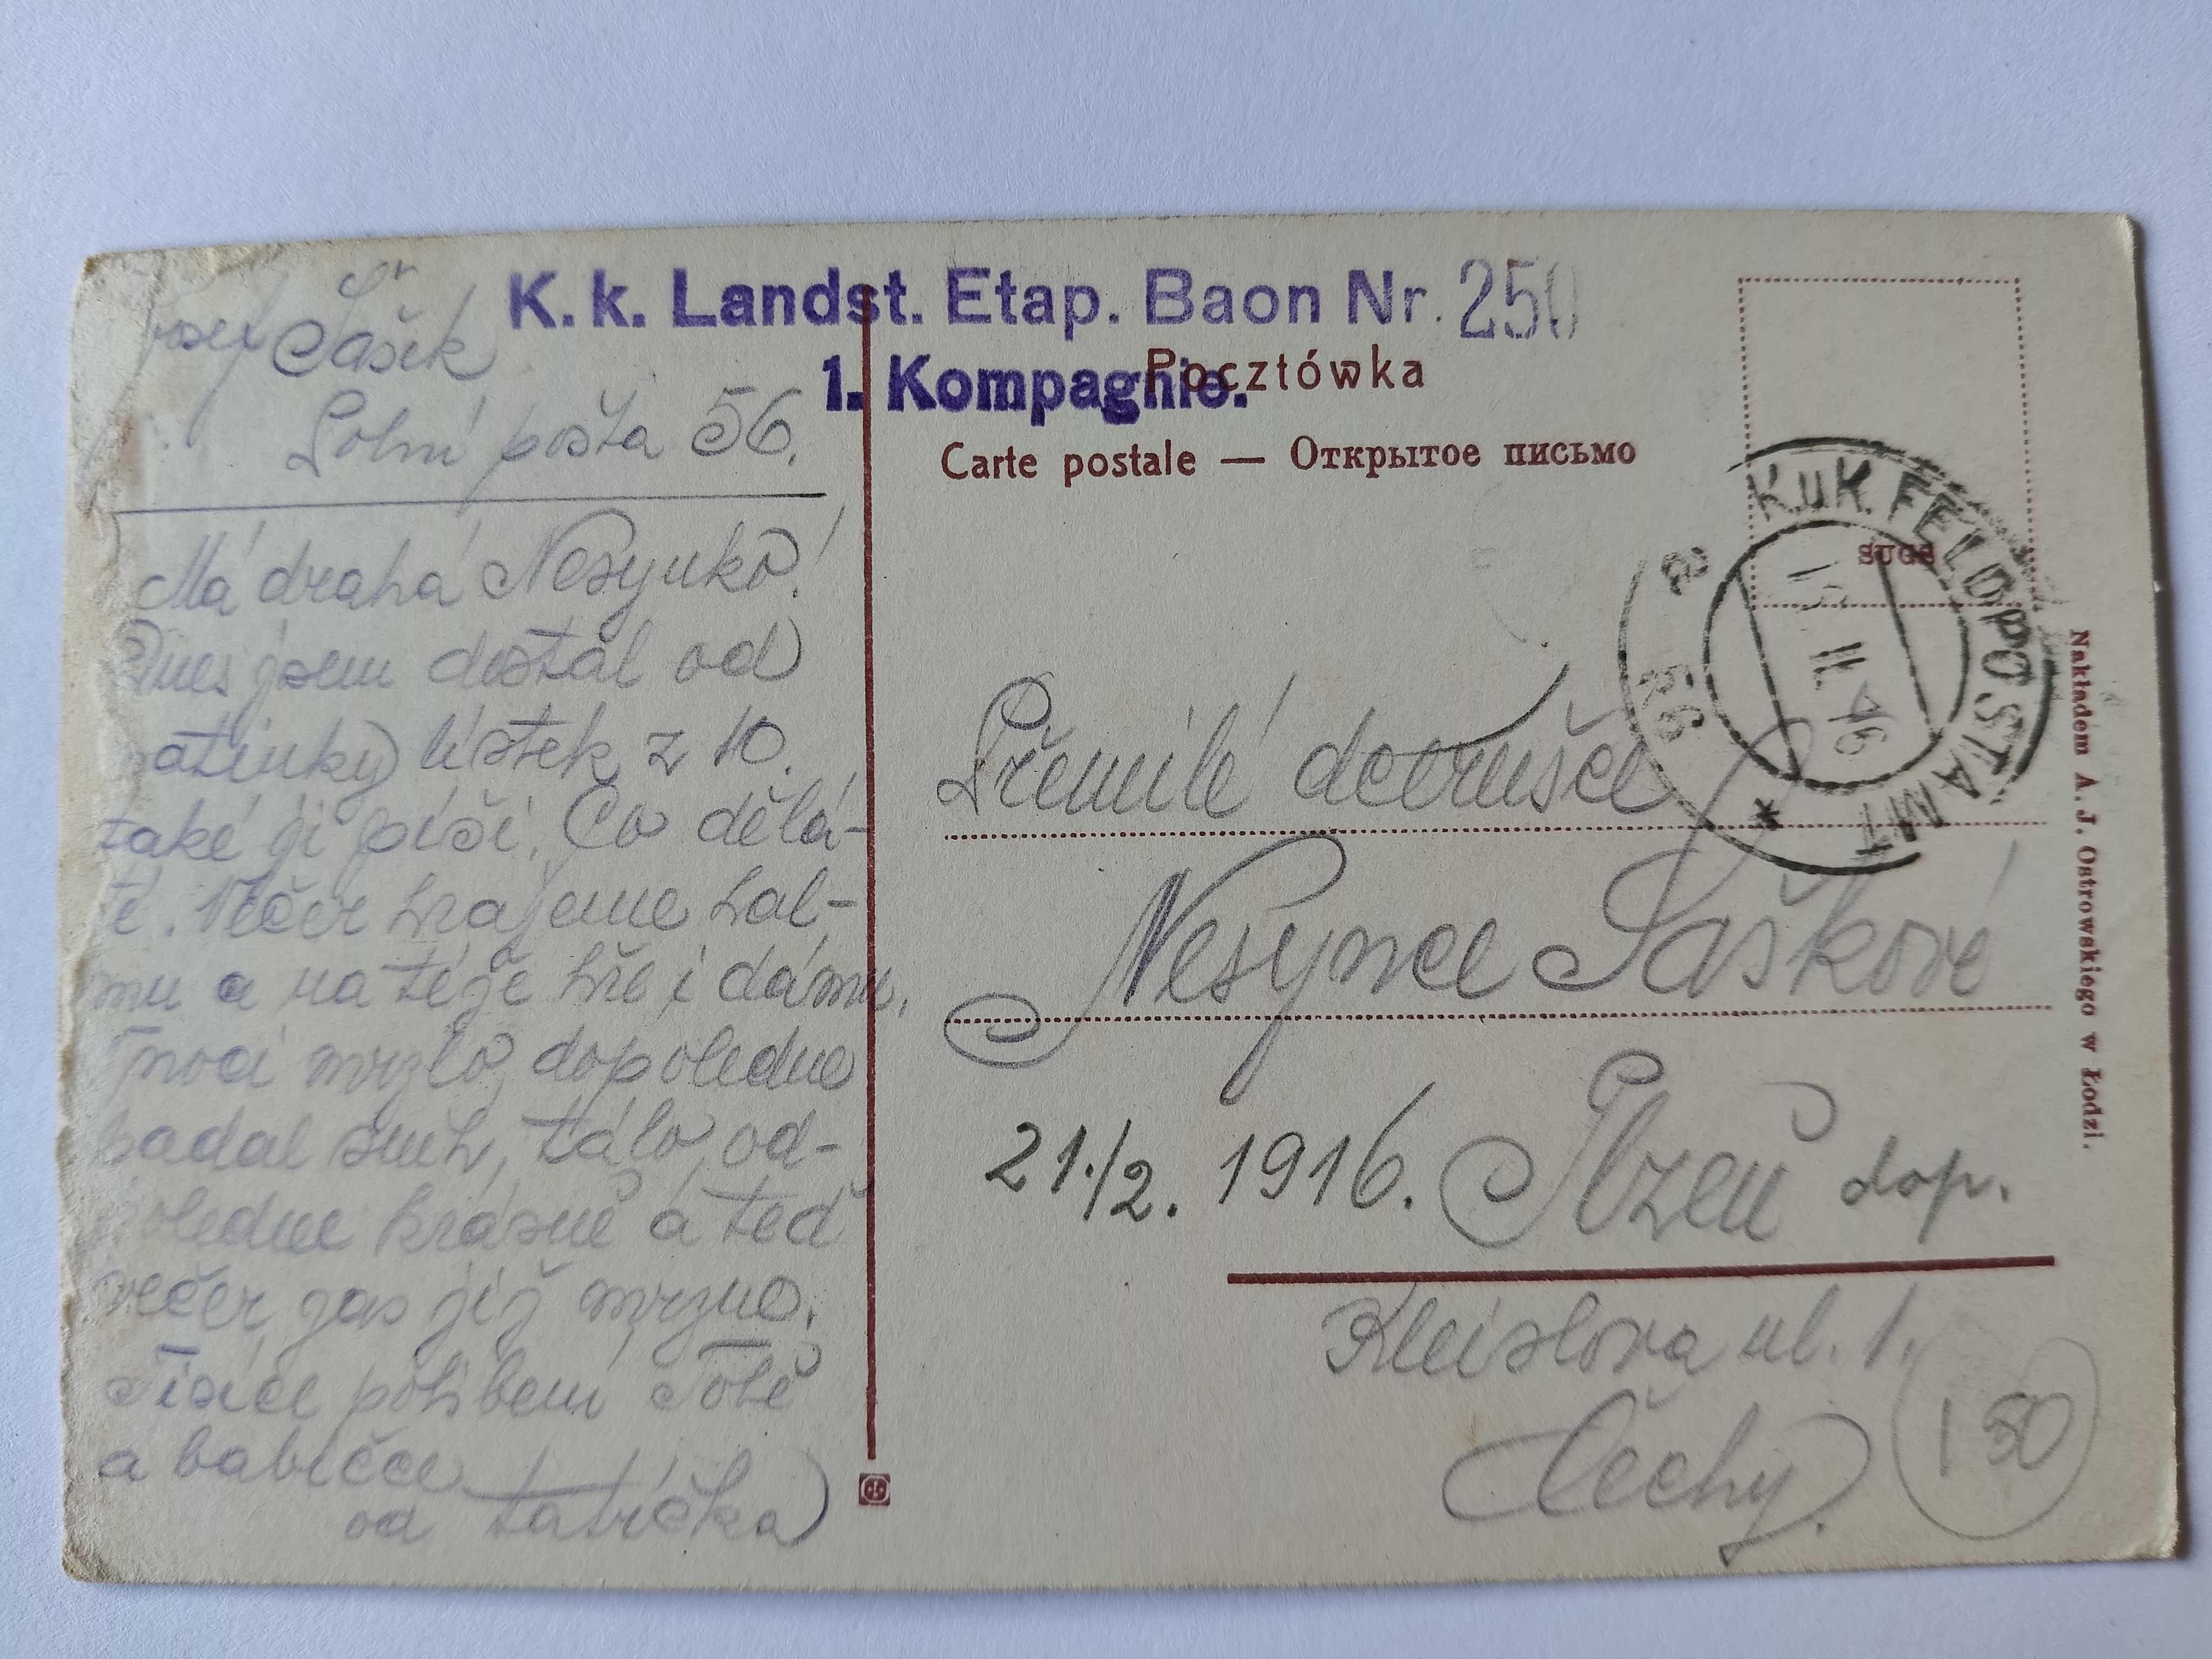 Josef Šašek
Polní pošta 56.
Má drahá Nesynko!
Dnes jsem dostal od
matinky lístek z 10.
také jí píši. Co dělá-
te. Večer hrajeme hal-
mu a na téže hře i dámu.
V noci mrzlo, dopoledne
padal sníh, tálo, od-
poledne krásně a teď
večer zas již mrzne.
Tisíce políbení Tobě
a babičce
od tatíčka
K. k. Landst. Etap. Baon Nr. 250
1. Kompagnie.
Pocztówka
Carte postale — Открытое письмо
SUGS
K.u.K. FELDPOSTAMT
II. 16
Přemilé dcerušce
Nesynce Šaškové
21./2. 1916. Plzeň dop.
Kleislova ul. 1.
Čechy.
150
Nakładem A. J. Ostrowskiego w Łodzi.